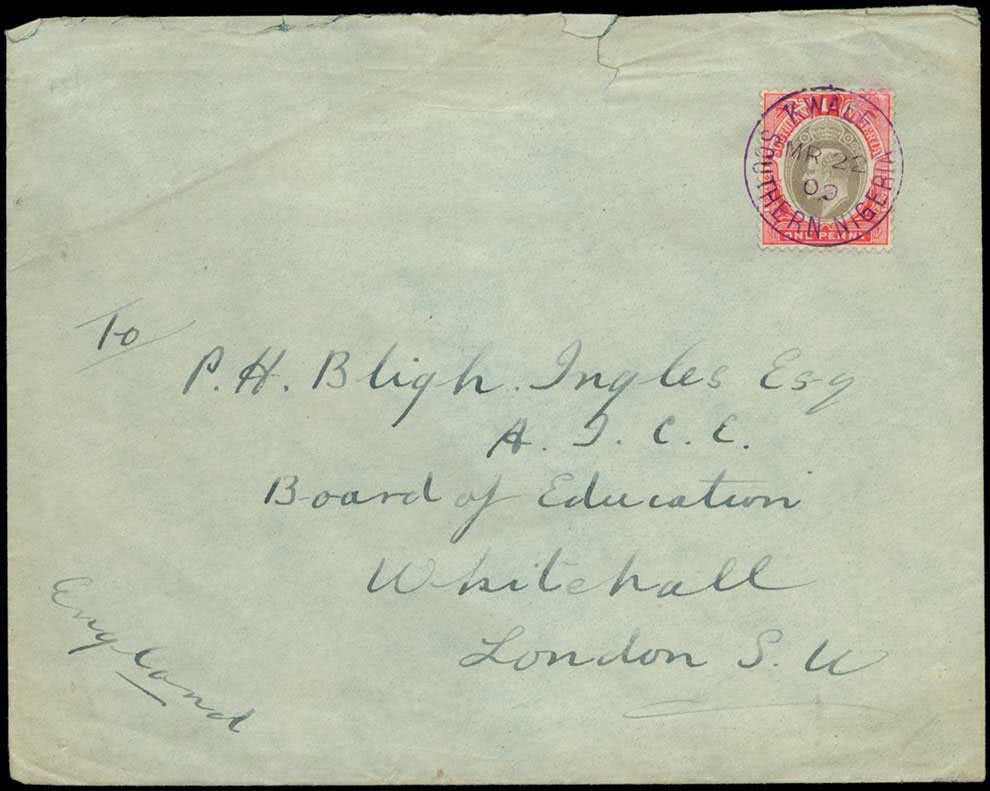 KWALE
MR 2
09
SOUTHERN NIGERIA
ONE PENNY
To
P. H. Bligh. Ingles Esq
A. I. C. E.
Board of Education
Whitehall
London S. W
England